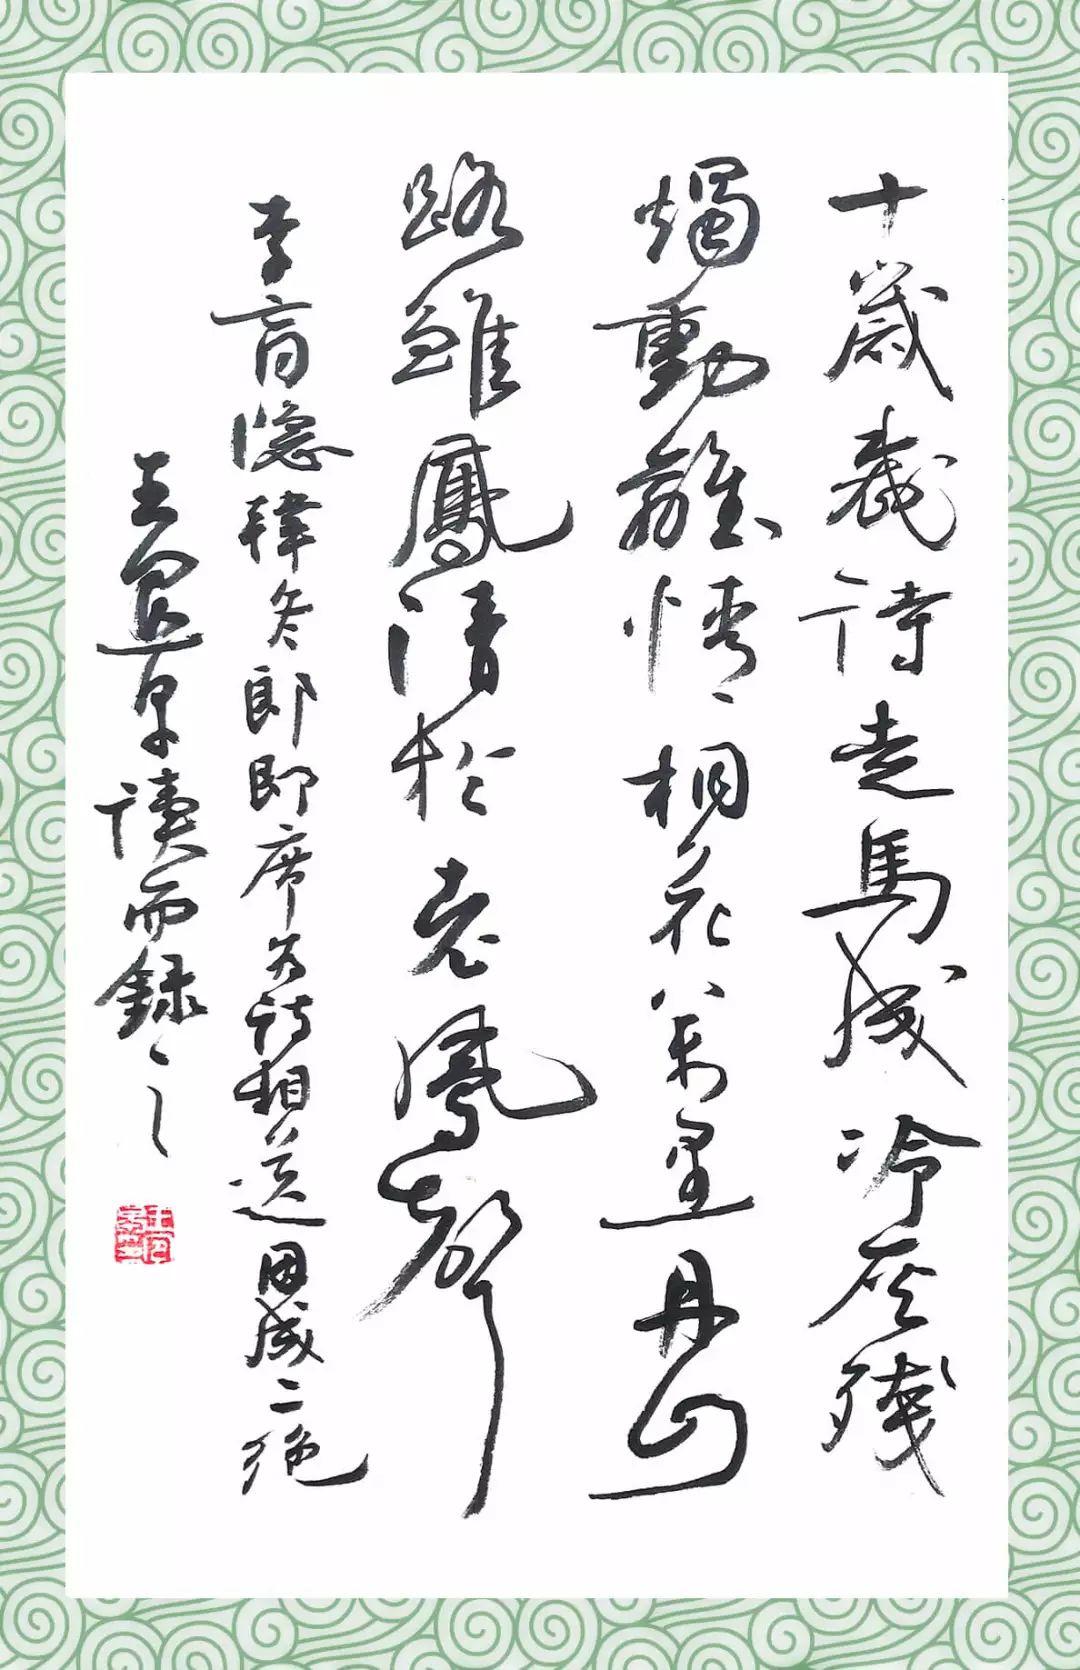 十歲裁詩走馬成冷灰殘
燭動離情桐花萬里丹山
路雛鳳清於老鳳聲
李商隱韓冬郎即席為詩相送因成二絕
王讀而錄之